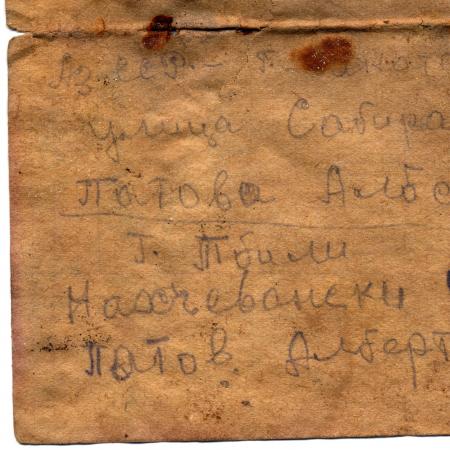 Аз ССР - г.
улица Сабира
Патова Албе
г. Тбили
Нахчевански
Патов. Алберт